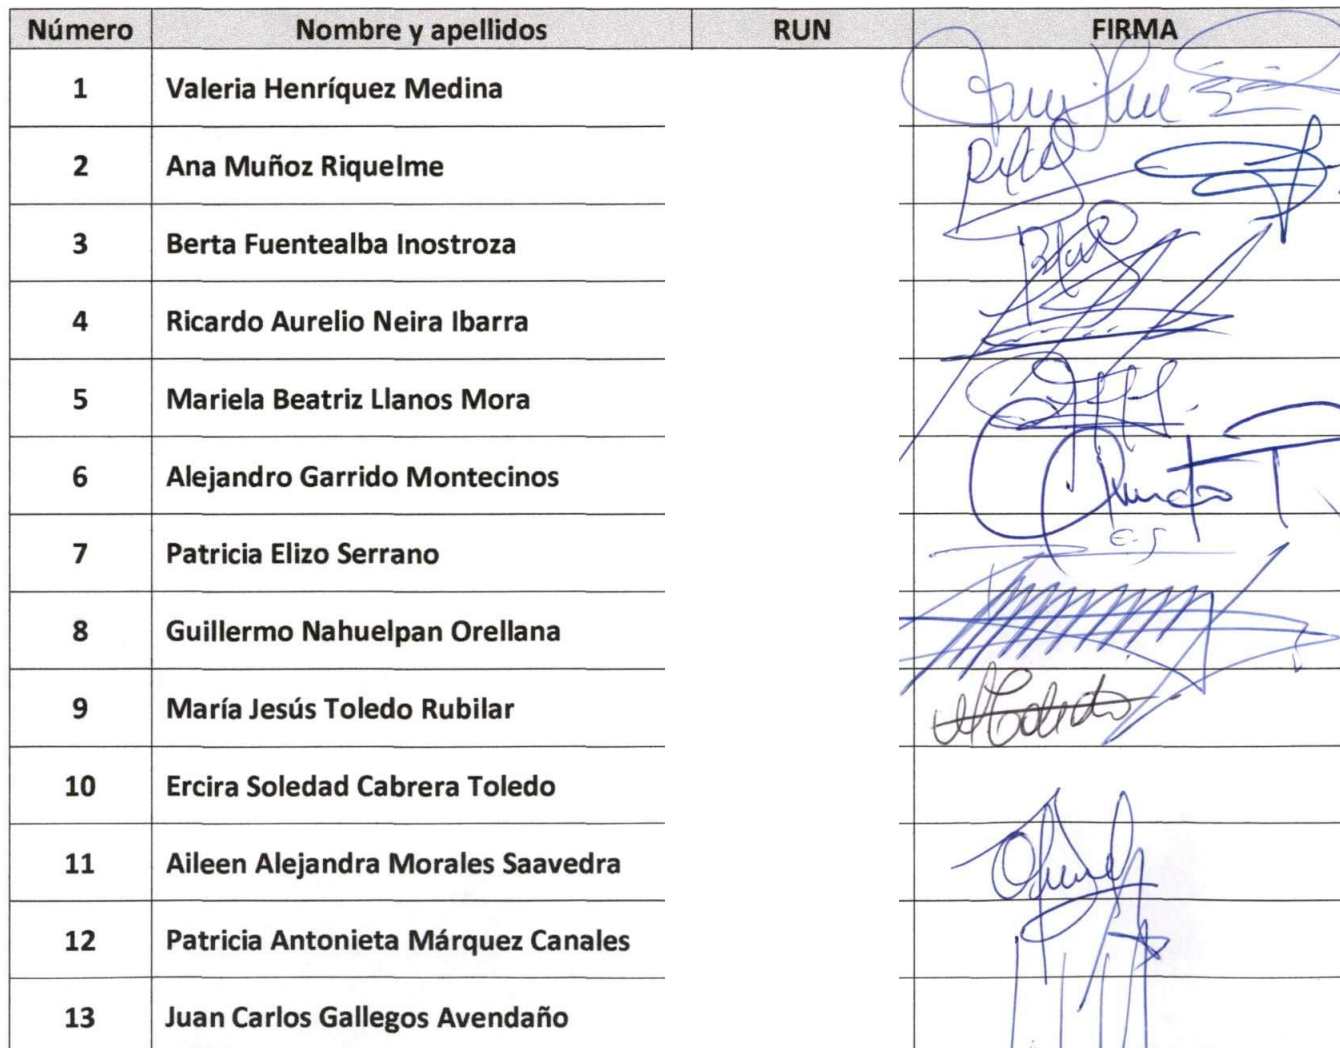 Número Nombre y apellidos RUN FIRMA
1 Valeria Henríquez Medina
2 Ana Muñoz Riquelme
3 Berta Fuentealba Inostroza
4 Ricardo Aurelio Neira Ibarra
5 Mariela Beatriz Llanos Mora
6 Alejandro Garrido Montecinos
7 Patricia Elizo Serrano
8 Guillermo Nahuelpan Orellana
9 María Jesús Toledo Rubilar
10 Ercira Soledad Cabrera Toledo
11 Aileen Alejandra Morales Saavedra
12 Patricia Antonieta Márquez Canales
13 Juan Carlos Gallegos Avendaño